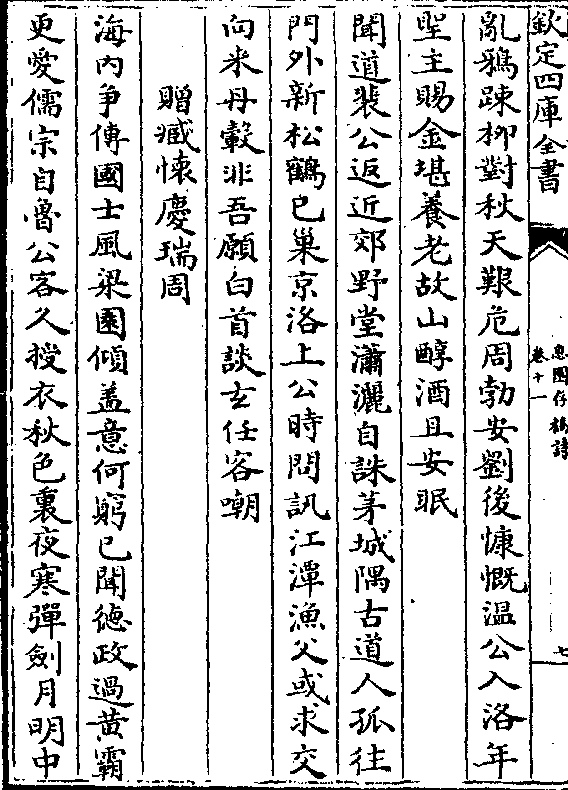 欽定四庫全書
息園存稿詩
卷十一
七
亂鴉踈柳對秋天艱危周勃安劉後慷慨温公入洛年
聖主賜金堪養老故山醇酒且安眠
聞道裴公返近郊野堂瀟灑自誅茅城隅古道人孤往
門外新松鶴已巢京洛上公時問訊江潭漁父或求交
向來丹轂非吾願白首談玄任客嘲
贈臧懷慶瑞周
海内爭傳國士風梁園傾盖意何窮已聞徳政過黄霸
更愛儒宗自魯公客久授衣秋色裏夜寒彈劍月明中